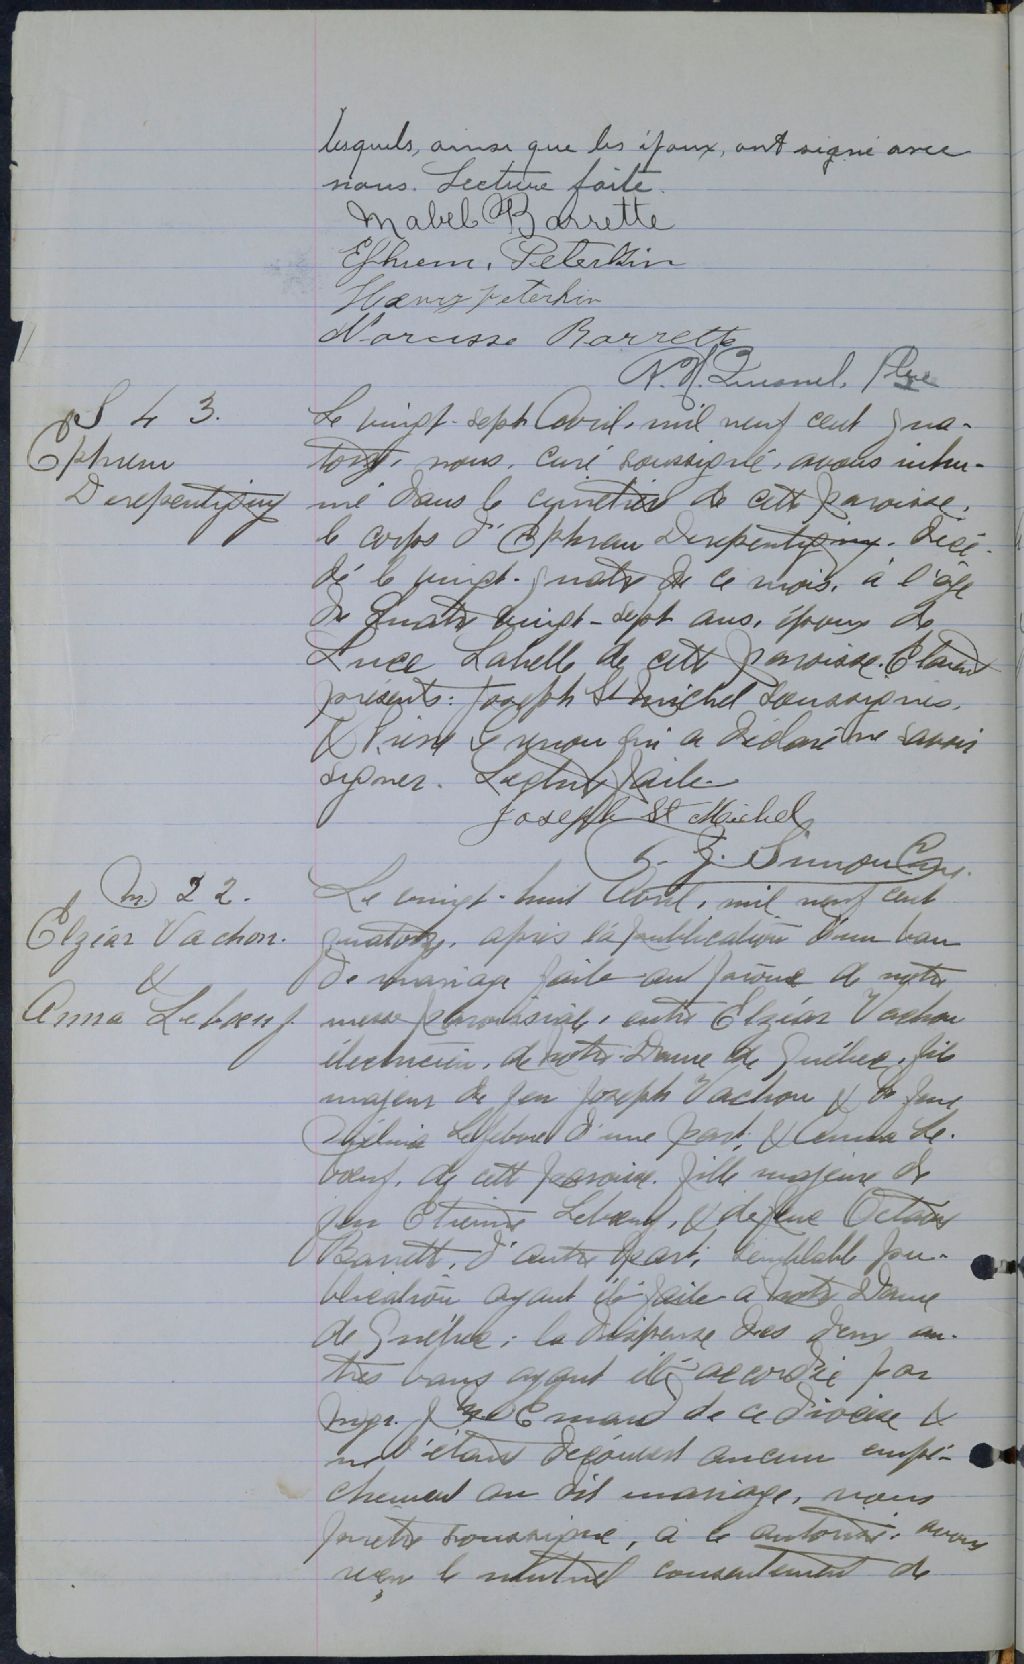 lesquels, ainsi que les époux, ont signé avec
nous. Lecture faite.
Mabel Barrette
Ephrem. Peterkin
Henry Peterkin
Narcisse Barrette
Ptre
S 43.
Ephrem
Derepentigny
Le vingt-sept Avril, mil neuf cent qua-
torze, nous, curé soussigné, avons inhu-
mé dans le cimetière de cette paroisse,
le corps d'Ephrem Derepentigny, décé-
dé le vingt-quatre de ce mois, à l'âge
de quatre vingt-sept ans, époux de
Luce Labelle de cette paroisse. Etaient
présents: Joseph St Michel soussignés,
& Pierre qui a déclaré ne savoir
signer. Lecture faite
Joseph St Michel
M. 22.
Elzéar Vachon.
&
Anna Leboeuf
Le vingt-huit Avril, mil neuf cent
quatorze, après la publication d'un ban
de mariage faite au prône de notre
messe paroissiale, entre Elzéar Vachon
électricien, de Notre Dame de Québec, fils
majeur de feu Joseph Vachon & de feue
Lefebvre d'une part, & Anna Le-
boeuf, de cette paroisse, fille majeure de
feu Etienne Leboeuf, & de feue Octavie
Barrette, d'autre part; semblable pu-
blication ayant été faite a Notre Dame
de Québec; la dispense des deux au-
tres bans ayant été accordée par
Mgr. J. M. Emard de ce diocèse &
ne s'étant découvert aucun empê-
chement au dit mariage, nous
prêtre soussigné, à ce autorisé, avons
reçu le mutuel consentement de